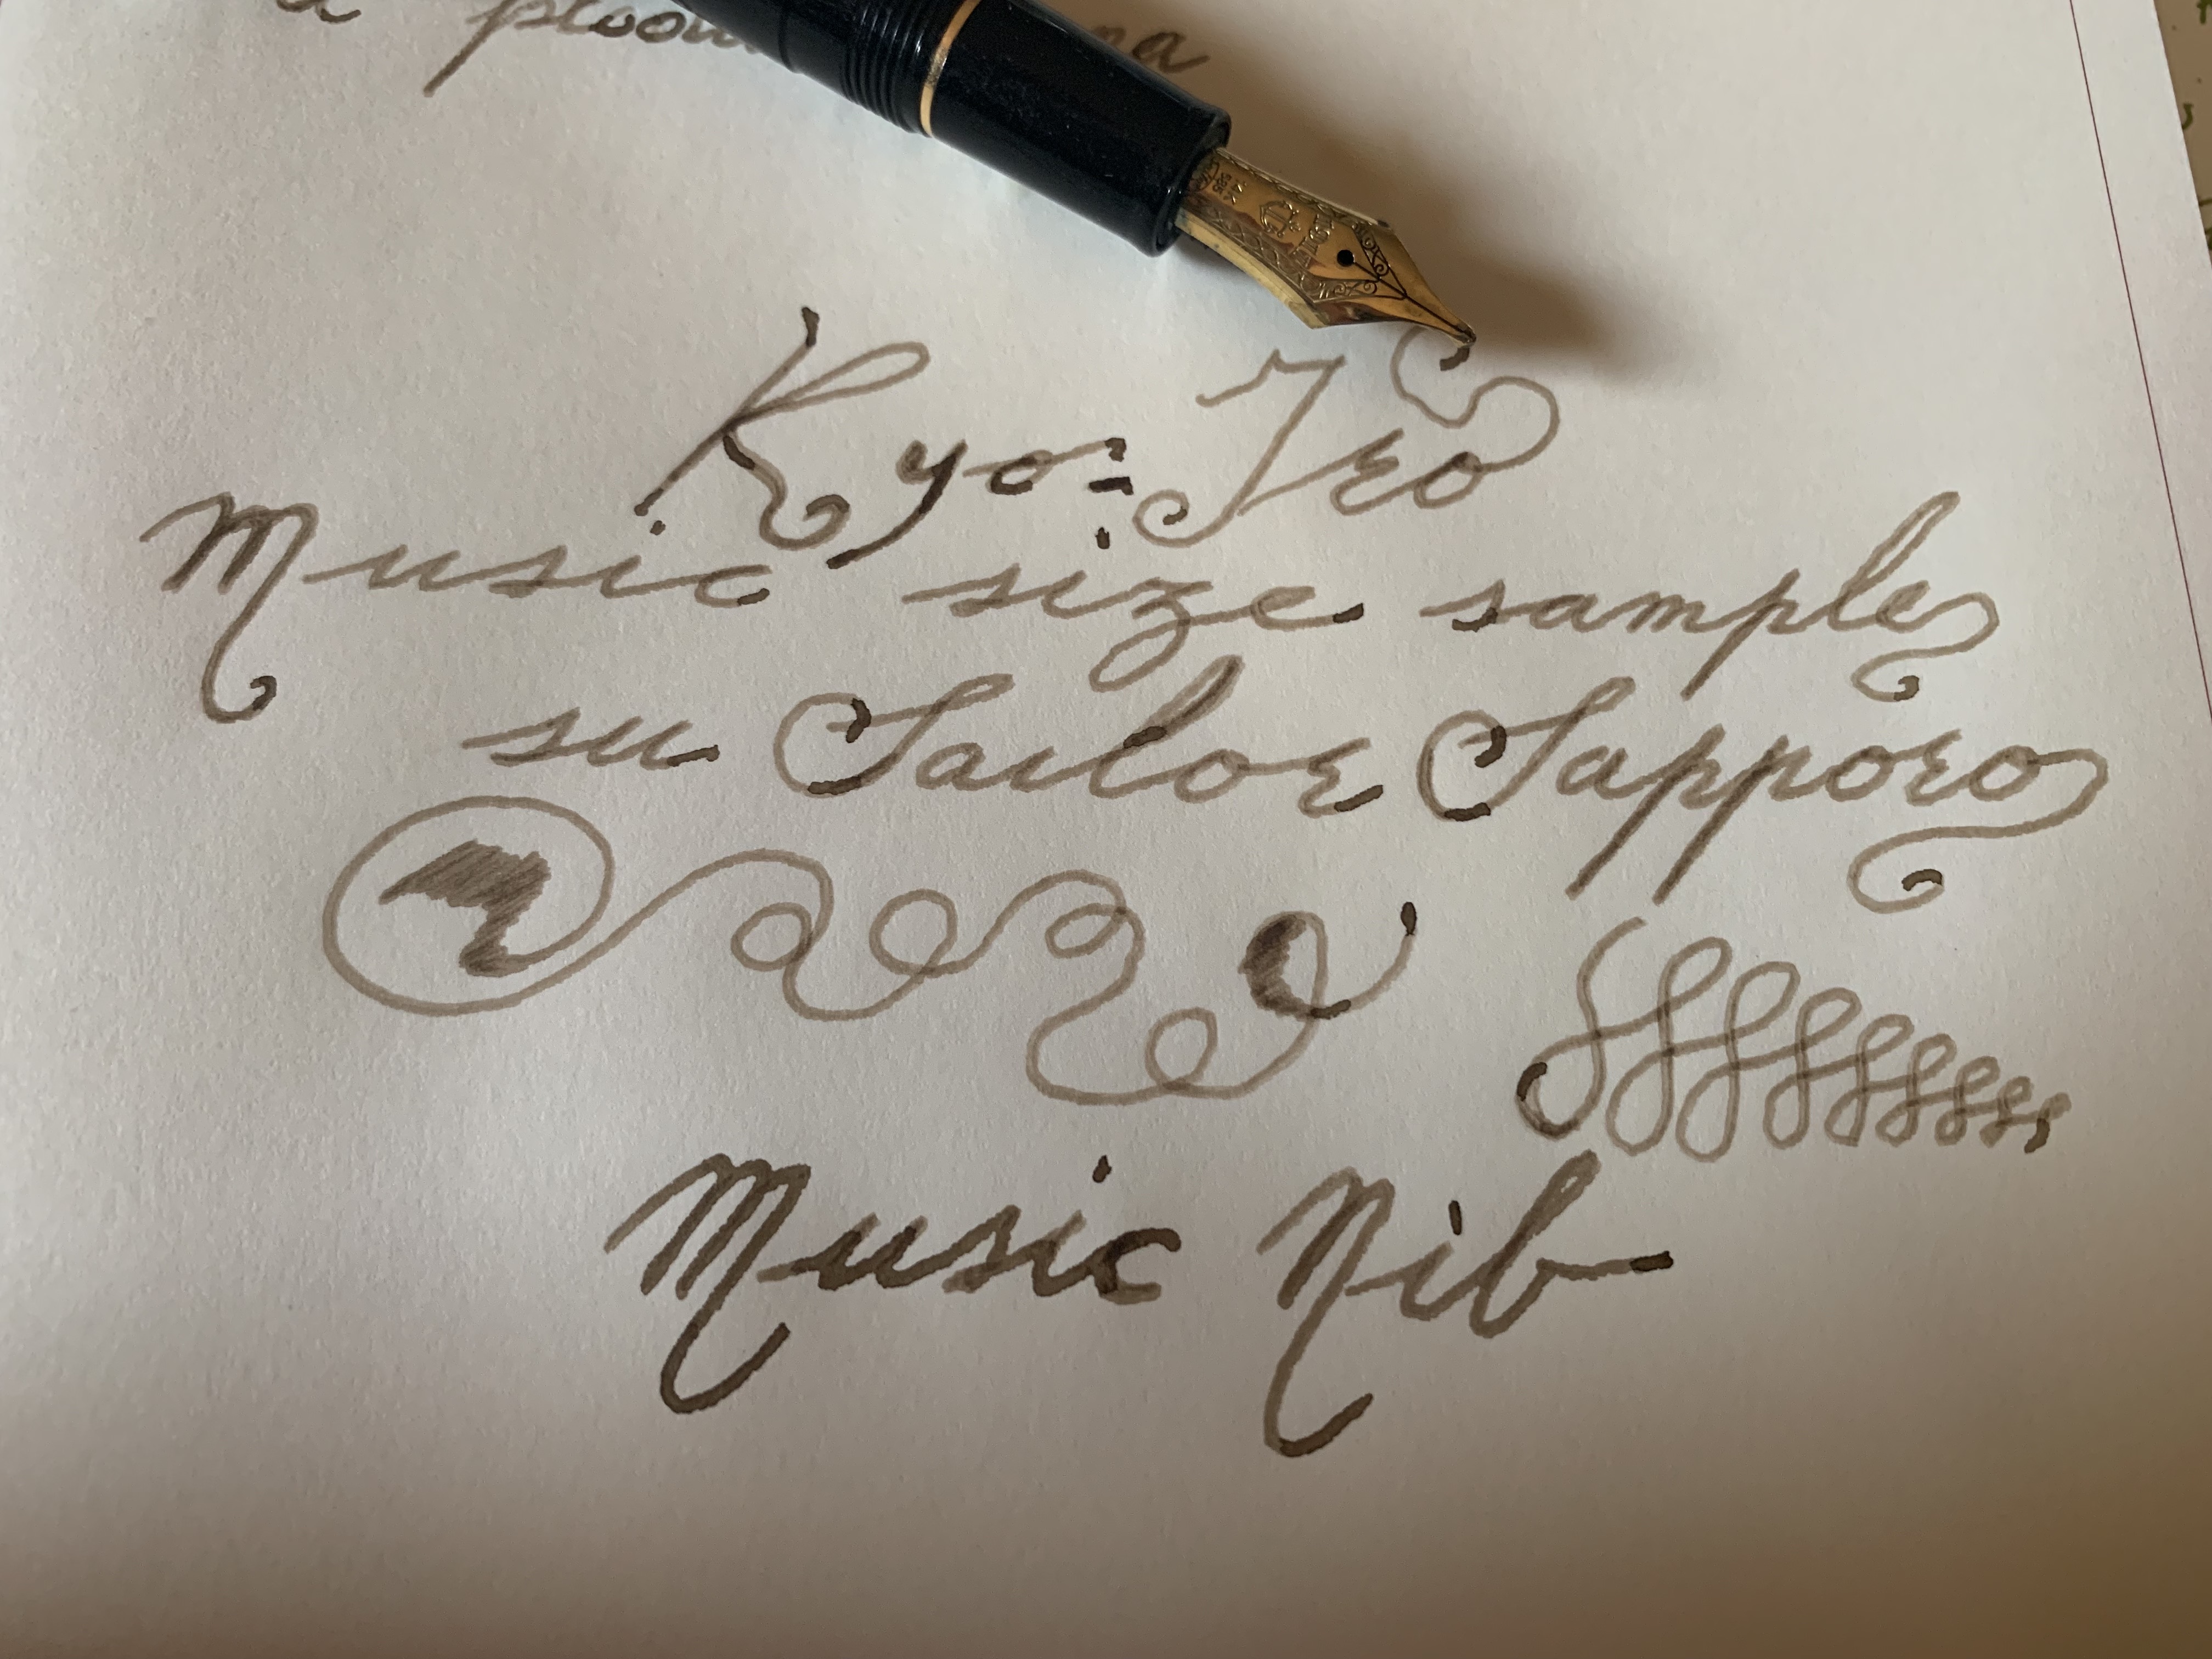 Kyo-Iro
Music size sample
su Sailor Sapporo
Music Nib